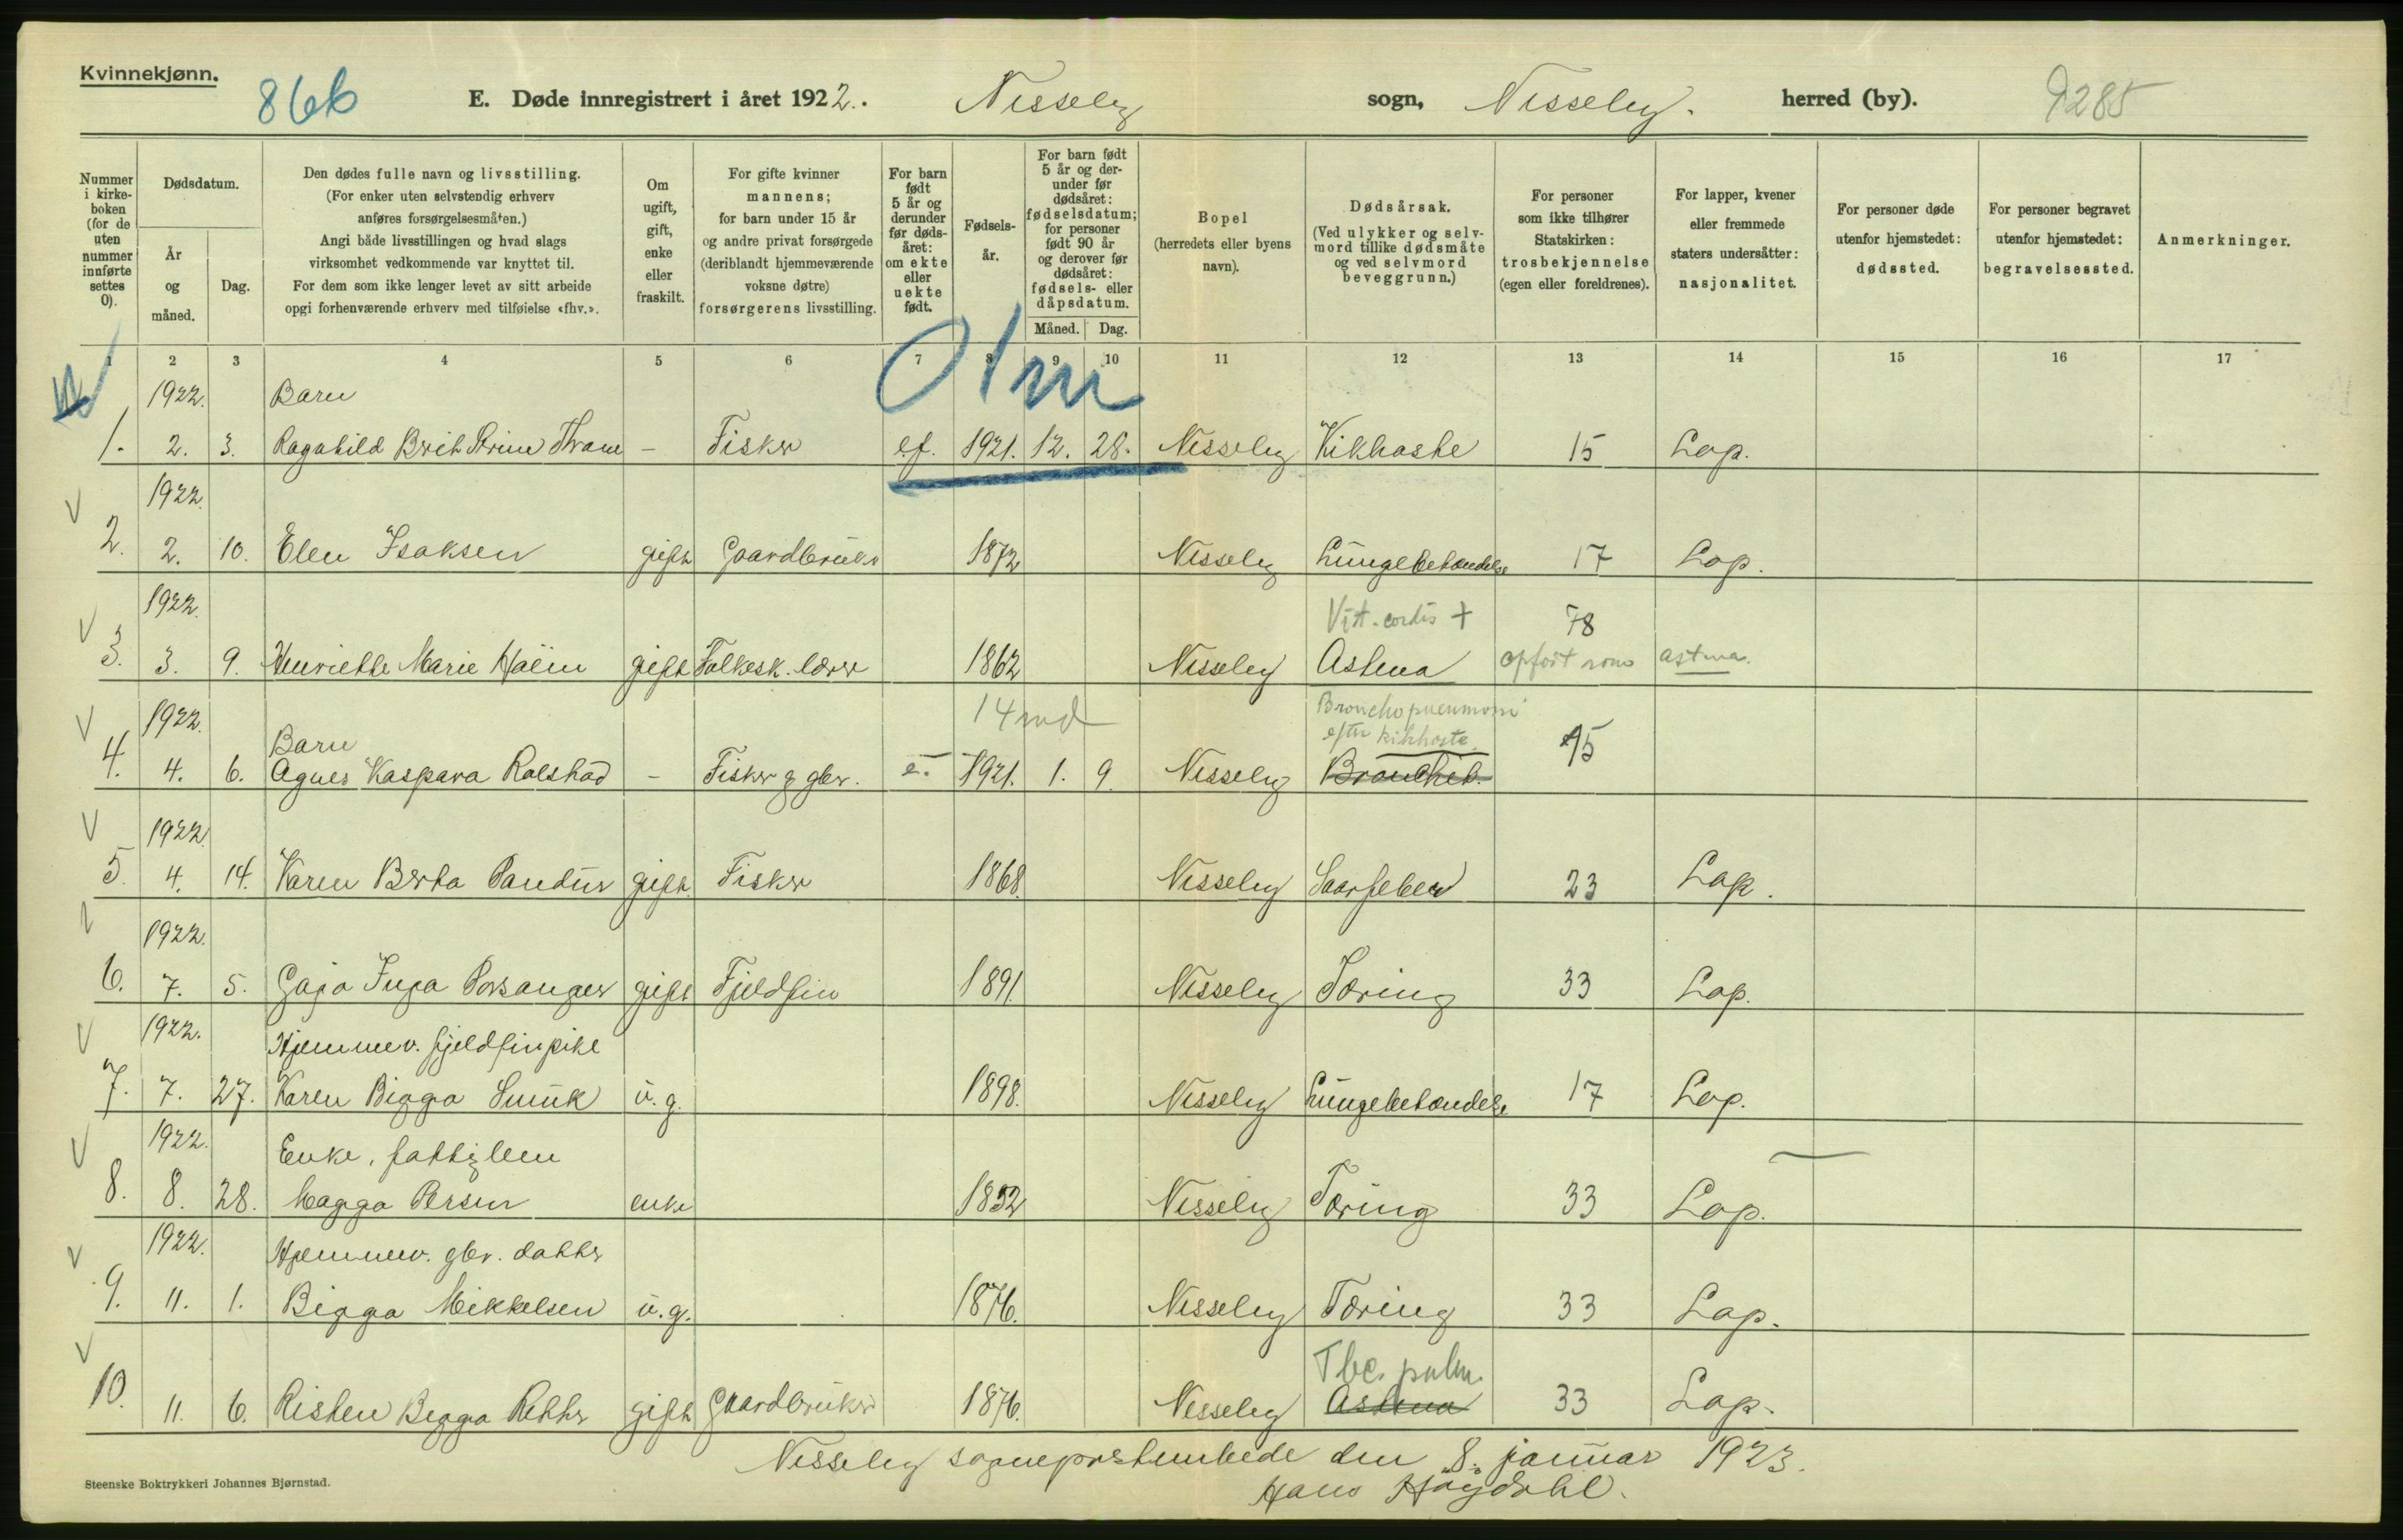 Kvinnekjønn.
86b
E. Døde innregistrert i året 1922. Nesseby sogn, Nesseby. herred (by). 9285
Nummer i kirke-boken (for de uten nummer innførte settes 0).
Dødsdatum.
År og måned.
Dag.
Den dødes fulle navn og livsstilling.
(For enker uten selvstendig erhverv anføres forsørgelsesmåten.)
Angi både livsstillingen og hvad slags virksomhet vedkommende var knyttet til.
For dem som ikke lenger levet av sitt arbeide opgi forhenværende erhverv med tilføielse «fhv.».
Om ugift, gift, enke eller fraskilt.
For gifte kvinner mannens; for barn under 15 år og andre privat forsørgede (deriblandt hjemmeværende voksne døtre) forsørgerens livsstilling.
For barn født 5 år og derunder før døds-året: om ekte eller uekte født.
Fødsels-år.
For barn født 5 år og der-under før dødsåret: fødselsdatum; for personer født 90 år og derover før dødsåret: fødsels- eller dåpsdatum.
Måned. Dag.
Bopel (herredets eller byens navn).
Dødsårsak. (Ved ulykker og selv-mord tillike dødsmåte og ved selvmord beveggrunn.)
For personer som ikke tilhører Statskirken: trosbekjennelse (egen eller foreldrenes).
For lapper, kvener eller fremmede staters undersåtter: nasjonalitet.
For personer døde utenfor hjemstedet: dødssted.
For personer begravet utenfor hjemstedet: begravelsessted.
Anmerkninger.
1 2 3 4 5 6 7 8 9 10 11 12 13 14 15 16 17
01m
1922. Barn
1. 2. 3. Ragnhild Brit Strine Thrane - Fisker e.f. 1921. 12. 28. Nesseby Kikhoste 15 Lap.
1922.
2. 2. 10. Elen Isaksen gift Gaardbruker 1872 Nesseby Lungebetændelse 17 Lap.
1922. Vit. cordis + 78
3. 3. 9. Henriette Marie gift Folkesk. lærer 1862 Nesseby Astma opført som astma.
1922. 14 md Bronchopneumoni
Barn efter kikhoste 15
4. 4. 6. Agnes Kaspara Rolstad - Fisker & gbr. e. 1921. 1. 9. Nesseby Bronchit.
1922.
5. 4. 14. Karen Berta gift Fisker 1868. Nesseby Saarfeber 23 Lap.
1922.
6. 7. 5. Gaja Inga Porsanger gift Fjeldfin 1891. Nesseby Tæring 33 Lap.
1922. Hjemmev. fjeldfinpike
7. 7. 27. Karen Bigga Smuk u.g. 1898. Nesseby Lungebetændelse 17 Lap.
1922. Enke, fattiglem
8. 8. 28. Magga Persen enke 1852 Nesseby Tæring 33 Lap.
1922. Hjemmev. gbr. datter
9. 11. 1. Bigga Mikkelsen u.g. 1876. Nesseby Tæring 33 Lap.
Tbc. pulm.
10. 11. 6. Risten Bigga gift Gaardbruker 1876. Nesseby Astma 33 Lap.
Nesseby sogneprestembede den 8. januar 1923.
Hans Høgdahl.
Steenske Boktrykkeri Johannes Bjørnstad.